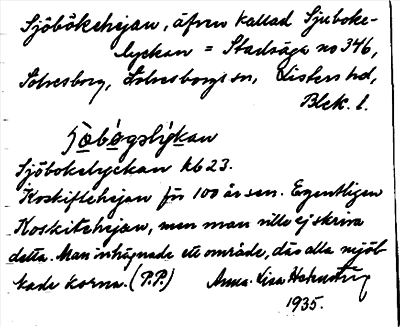 Sjöbökehejan, äfven kallad Sjuboke-
lyckan = Stadsäga no 346,
Sölvesborg, Sölvesborgs sn, Listers hd,
Blek. l.
Sjöbokelyckan kb 23.
Koskiftehejan för 100 år sen. Egentligen
Koskitehejan, men man ville ej skriva
detta. Man inhägnade ett område, där alla mjöl-
kade korna. (P.P.) Anna-Lisa
1935.